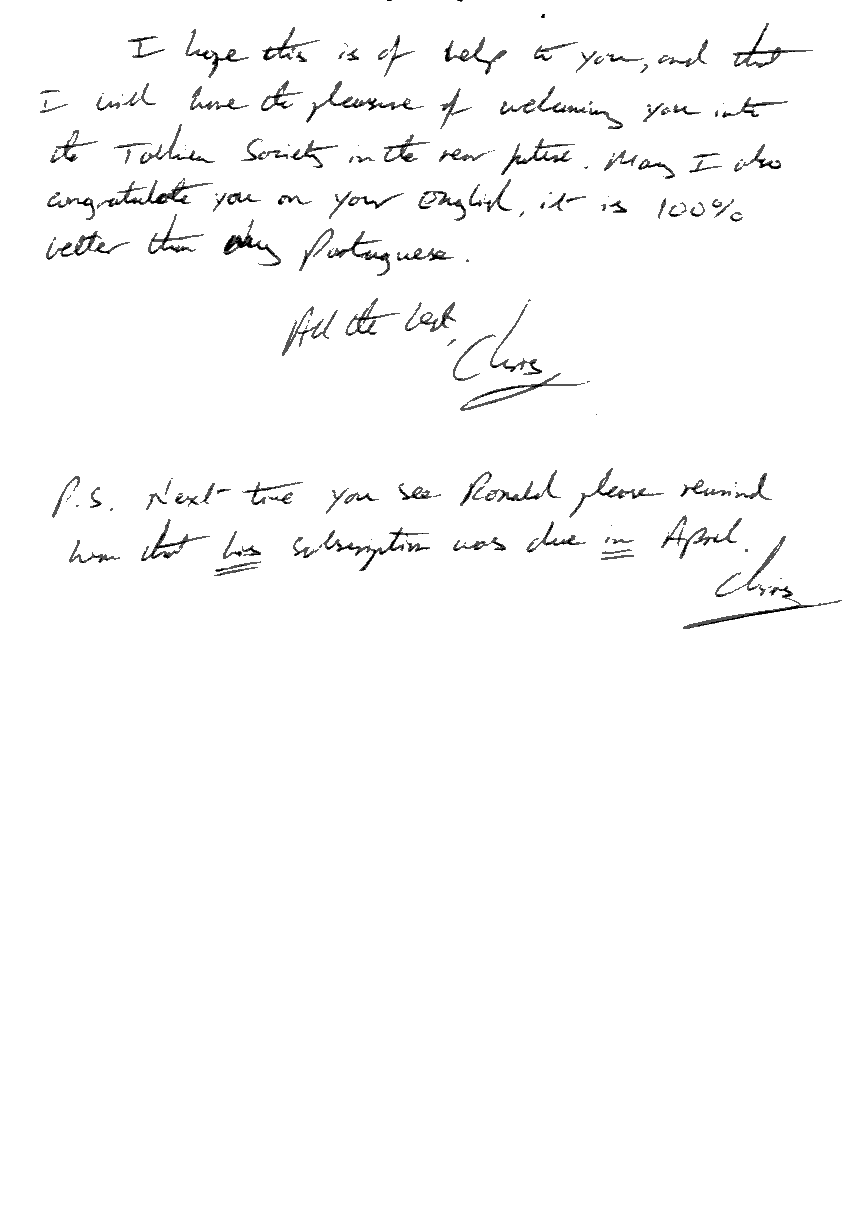 I hope this is of help to you, and that
I will have the pleasure of welcoming you into
the Tolkien Society in the near future. May I also
congratulate you on your English, it is 100%
better than my Portuguese.
All the best,
Chris
P.S. Next time you see Ronald please remind
him that his subscription was due in April.
Chris